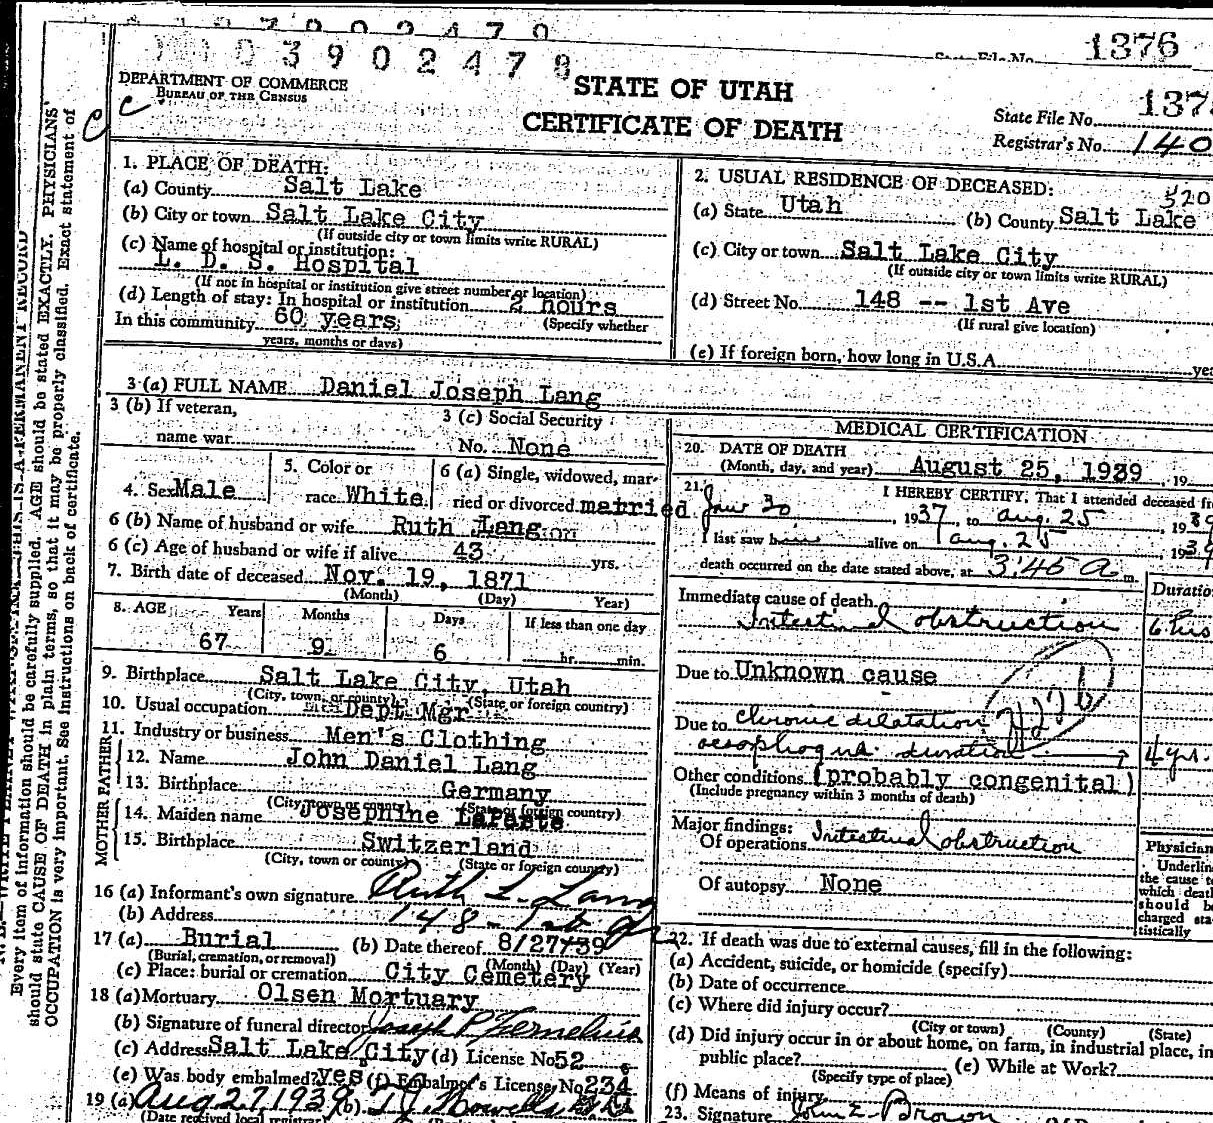 0 3 9 0 2 4 7 8
State File No. 1376
DEPARTMENT OF COMMERCE
BUREAU OF THE CENSUS
STATE OF UTAH
CERTIFICATE OF DEATH
State File No. 137
Registrar's No. 140
1. PLACE OF DEATH:
(a) County Salt Lake
(b) City or town Salt Lake City
(If outside city or town limits write RURAL)
(c) Name of hospital or institution:
L. D. S. Hospital
(If not in hospital or institution give street number or location)
(d) Length of stay: In hospital or institution 2 hours
In this community 60 years (Specify whether
years, months or days)
2. USUAL RESIDENCE OF DECEASED: 520
(a) State Utah (b) County Salt Lake
(c) City or town Salt Lake City
(If outside city or town limits write RURAL)
(d) Street No. 148 -- 1st Ave
(If rural give location)
(e) If foreign born, how long in U.S.A.
3 (a) FULL NAME Daniel Joseph Lang
3 (b) If veteran,
name war
3 (c) Social Security
No. None
4. Sex Male
5. Color or
race White
6 (a) Single, widowed, mar-
ried or divorced married
6 (b) Name of husband or wife Ruth Lang
6 (c) Age of husband or wife if alive 43 yrs.
7. Birth date of deceased Nov. 19, 1871
(Month) (Day) Year)
8. AGE Years Months Days If less than one day
67 9 6 hr. min.
9. Birthplace Salt Lake City, Utah
(City, town, or county) (State or foreign country)
10. Usual occupation Dept Mgr
11. Industry or business Men's Clothing
FATHER
12. Name John Daniel Lang
13. Birthplace Germany
(City, town or county) (State or foreign country)
MOTHER
14. Maiden name Josephine
15. Birthplace Switzerland
(City, town or county) (State or foreign country)
16 (a) Informant's own signature Ruth L. Lang
(b) Address 148 - 1st
17 (a) Burial (b) Date thereof 8/27/39
(Burial, cremation, or removal) (Month) (Day) (Year)
(c) Place: burial or cremation City Cemetery
18 (a) Mortuary Olsen Mortuary
(b) Signature of funeral director Joseph P Fernelius
(c) Address Salt Lake City (d) License No 52
(e) Was body embalmed? yes (f) Embalmer's License No 234
19 (a) Aug 27 1939 (b)
(Date received local registrar)
MEDICAL CERTIFICATION
20. DATE OF DEATH
(Month, day, and year) August 25, 1939, 19
21. I HEREBY CERTIFY, That I attended deceased fr
Jan 30, 1937, to Aug. 25, 1939
I last saw h alive on Aug. 25, 1939
death occurred on the date stated above, at 3:45 a m.
Immediate cause of death Duratio
Intestinal obstruction 6 hrs
Due to Unknown cause
Due to Chronic dilatation
oesophagus duration 4 yr.
Other conditions (probably congenital)
(Include pregnancy within 3 months of death)
Major findings:
Of operations Intestinal obstruction
Of autopsy None
Physician
Underlin
the cause t
which deat
should b
charged sta
tistically
22. If death was due to external causes, fill in the following:
(a) Accident, suicide, or homicide (specify)
(b) Date of occurrence
(c) Where did injury occur?
(City or town) (County) (State)
(d) Did injury occur in or about home, on farm, in industrial place, in
public place? (e) While at Work?
(Specify type of place)
(f) Means of injury
23. Signature John E. Brown
Every item of information should be carefully supplied. AGE should be stated EXACTLY. PHYSICIANS
should state CAUSE OF DEATH in plain terms, so that it may be properly classified. Exact statement of
OCCUPATION is very important. See instructions on back of certificate.